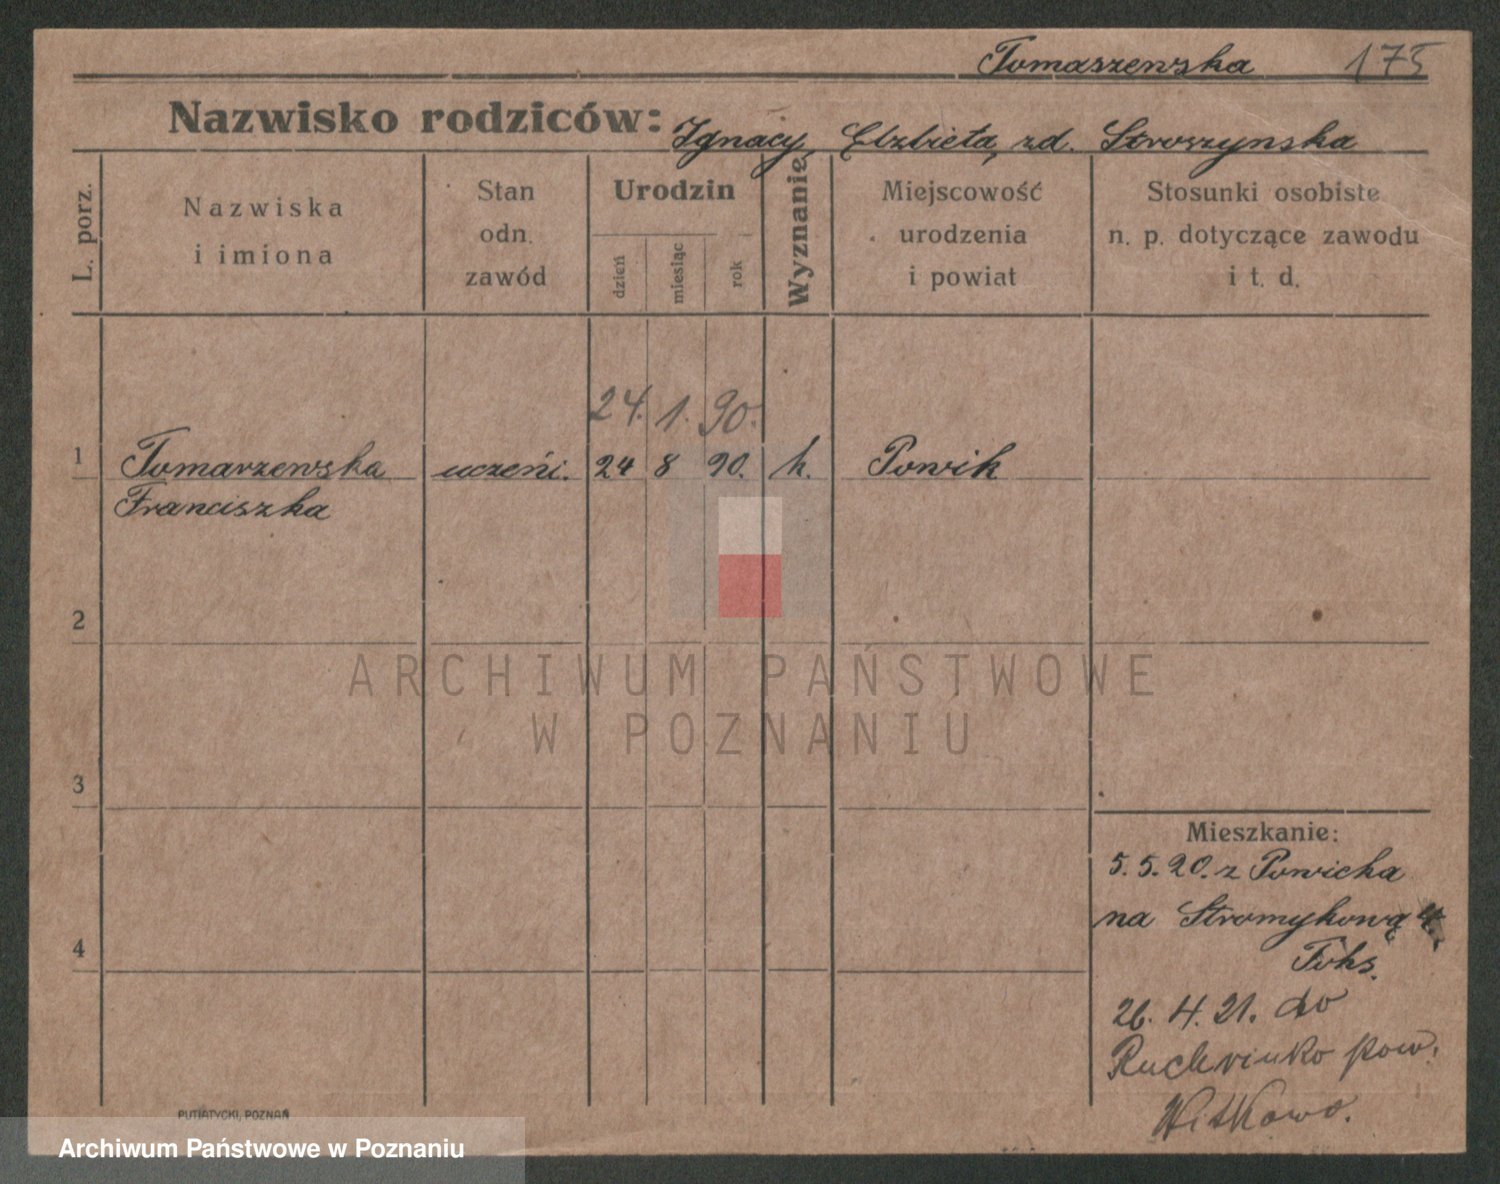 Tomaszewska 175
Nazwisko rodziców: Ignacy, Elzbieta, zd. Stroszynska
L. porz.
Nazwiska
i imiona
Stan
odn.
zawód
Urodzin
dzień
miesiąc
rok
Wyznanie
Miejscowość
urodzenia
i powiat
Stosunki osobiste
n. p. dotyczące zawodu
i t. d.
24. 1. 90.
1 Tomaszewska uczeńi. 24 8 90. k. Powik
Franciszka
2
ARCHIWUM PAŃSTWOWE
W POZNANIU
3
Mieszkanie:
5.5.20. z Powicka
na
4
26. 4. 21. do
pow.
Witkowo.
PUTIATYCKI, POZNAŃ
Archiwum Państwowe w Poznaniu